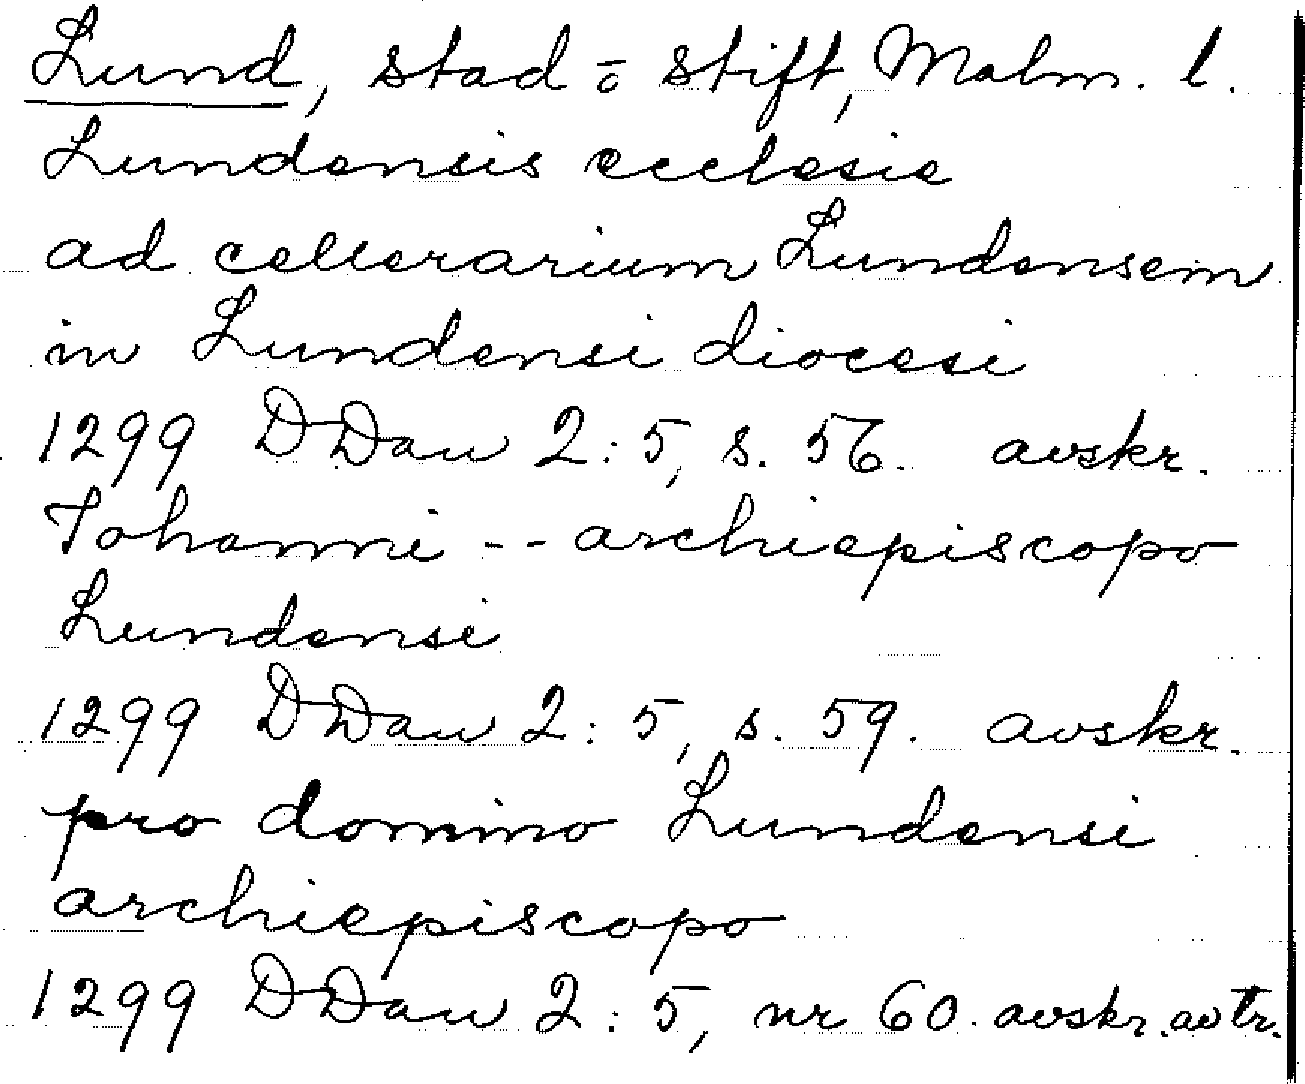 Lund, stad o stift, Malm. l.
Lundensis ecclesie
ad cellerarium Lundensem
in Lundensi diocesi
1299 DDan 2:5, s. 56. avskr.
Johanni -- archiepiscopo
Lundensi
1299 DDan 2:5, s. 59. avskr.
pro domino Lundensi
archiepiscopo
1299 DDan 2:5, nr 60. avskr. av tr.